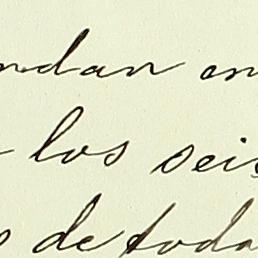 ndan en
los seis
s de toda